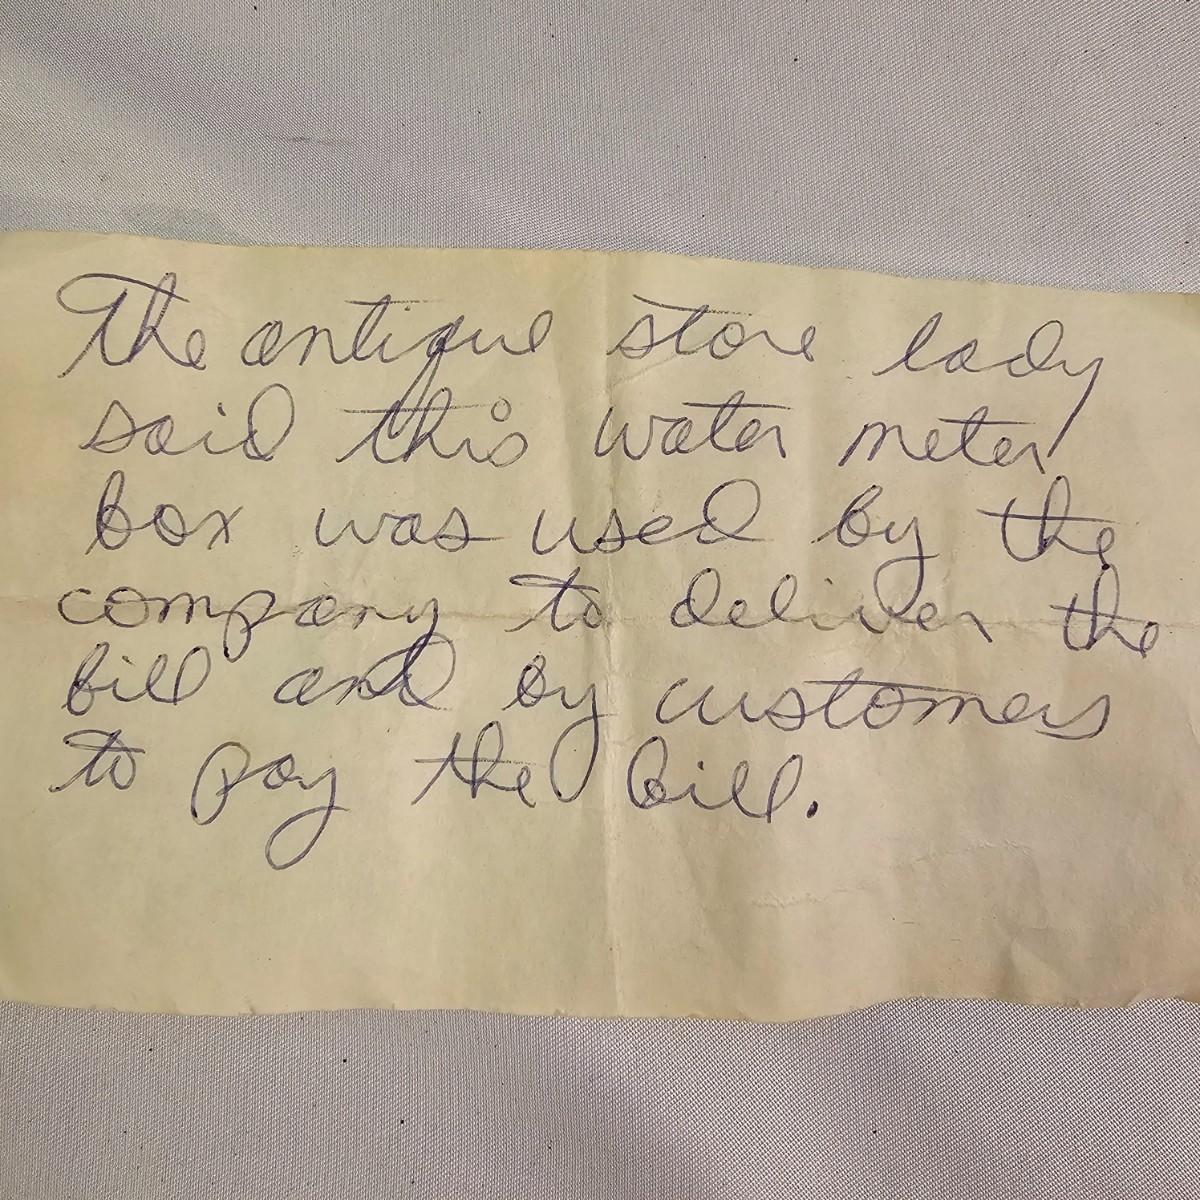 The antique store lady
said this water meter
box was used by the
company to deliver the
bill and by customers
to pay the bill.